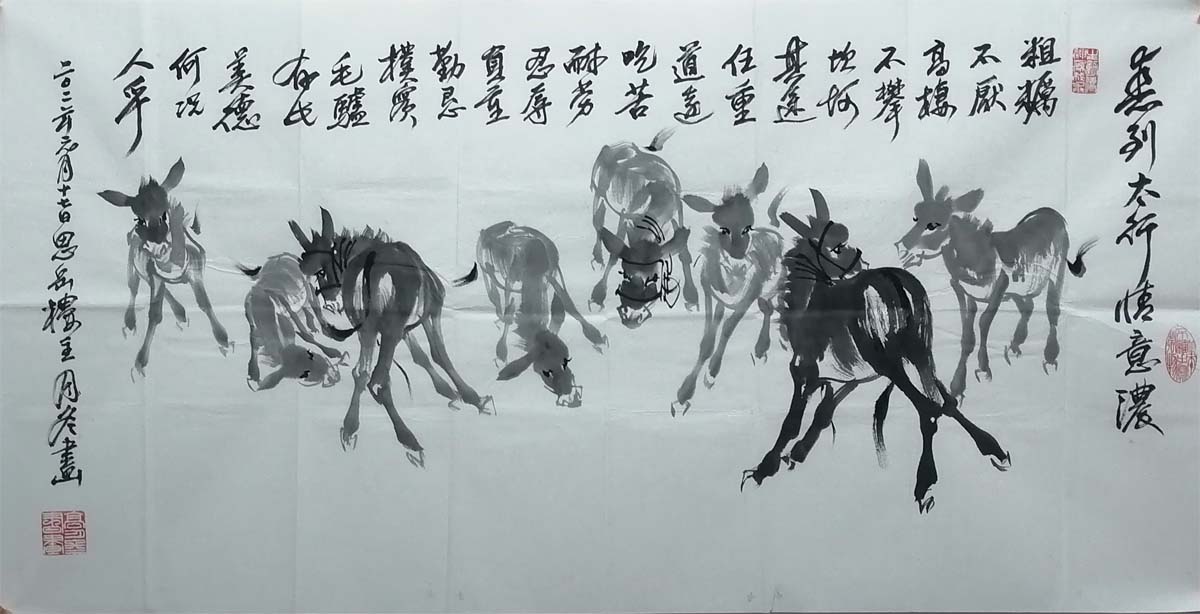 太行情意濃
粗糲
不厭
高樓
不攀
坎坷
其途
任重
道遠
吃苦
耐勞
忍辱
負重
勤恳
樸實
毛驢
有此
美德
何況
人乎
二〇二二年月十七日思岳樓主月冬畫